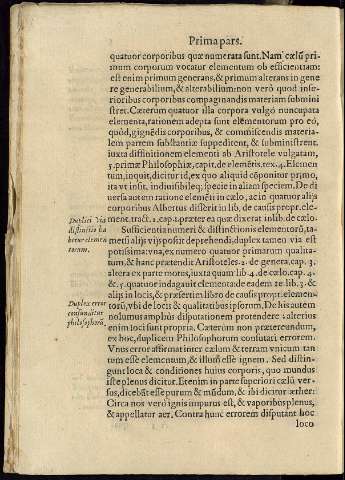 Prima pars.
quatuor corporibus quæ numerata sunt. Nam cælũ pri-
mum corporum vocatur elementum ob efficientiam:
est enim primum generans, & primum alterans in gene
re generabilium, & alterabilium: non verò quod infe-
rioribus corporibus compaginandis materiam submini
stret. Cæterum quatuor illa corpora vulgò nuncupata
elementa, rationem adepta sunt elementorum pro eo,
quòd, gignẽdis corporibus, & commiscendis materia-
lem partem substantiæ suppeditent, & subministrent.
iuxta diffinitionem elementi ab Aristotele vulgatam,
5. primæ Philosophiæ, capit. de elemẽtis. tex. 4. Elemen-
tum, inquit, dicitur id, ex quo aliquid cõponitur primo,
ita vt insit, indiuisibileq; specie in aliam speciem. De di
uersa autem ratione elementi in cælo, ac in quatuor alijs
corporibus Albertus disserit in lib. de causis propr. ele-
ment. tract. 1. cap. 2. præter ea quæ dixerat in lib. de cælo.
Duplici via
distinctio ha
betur elemen
torum.
Sufficientia numeri & distinctionis elementorũ, ta-
metsi alijs vijs possit deprehendi, duplex tamen via est
potissima: vna, ex numero quatuor primarum qualita-
tum, & hanc prætendit Aristoteles 2. de genera. cap. 3.
altera ex parte motus, iuxta quam lib. 4. de cælo. cap. 4.
& 5. quatuor indagauit elementa de eadem re lib. 3. &
alijs in locis, & præsertim libro de causis propri. elemen-
torũ, vbi de locis & qualitatibus ipsorum. De his autem
nolumus amplius disputationem protendere: alterius
enim loci sunt propria. Cæterum non prætereundum,
Duplex error
confutatur
philosophorũ.
ex hoc, duplicem Philosophorum confutari errorem.
Vnus error affirmat inter cælum & terram vnicum tan
tum esse elementum, & illum esse ignem. Sed distin-
guunt loca & conditiones huius corporis, quo mundus
iste plenus dicitur. Etenim in parte superiori cælũ ver-
sus, dicebãt esse purum, & mũdum, & ibi dicitur æther:
Circa nos verò ignis impurus est, & vaporibus plenus,
& appellatur aer. Contra hunc errorem disputant hoc
loco